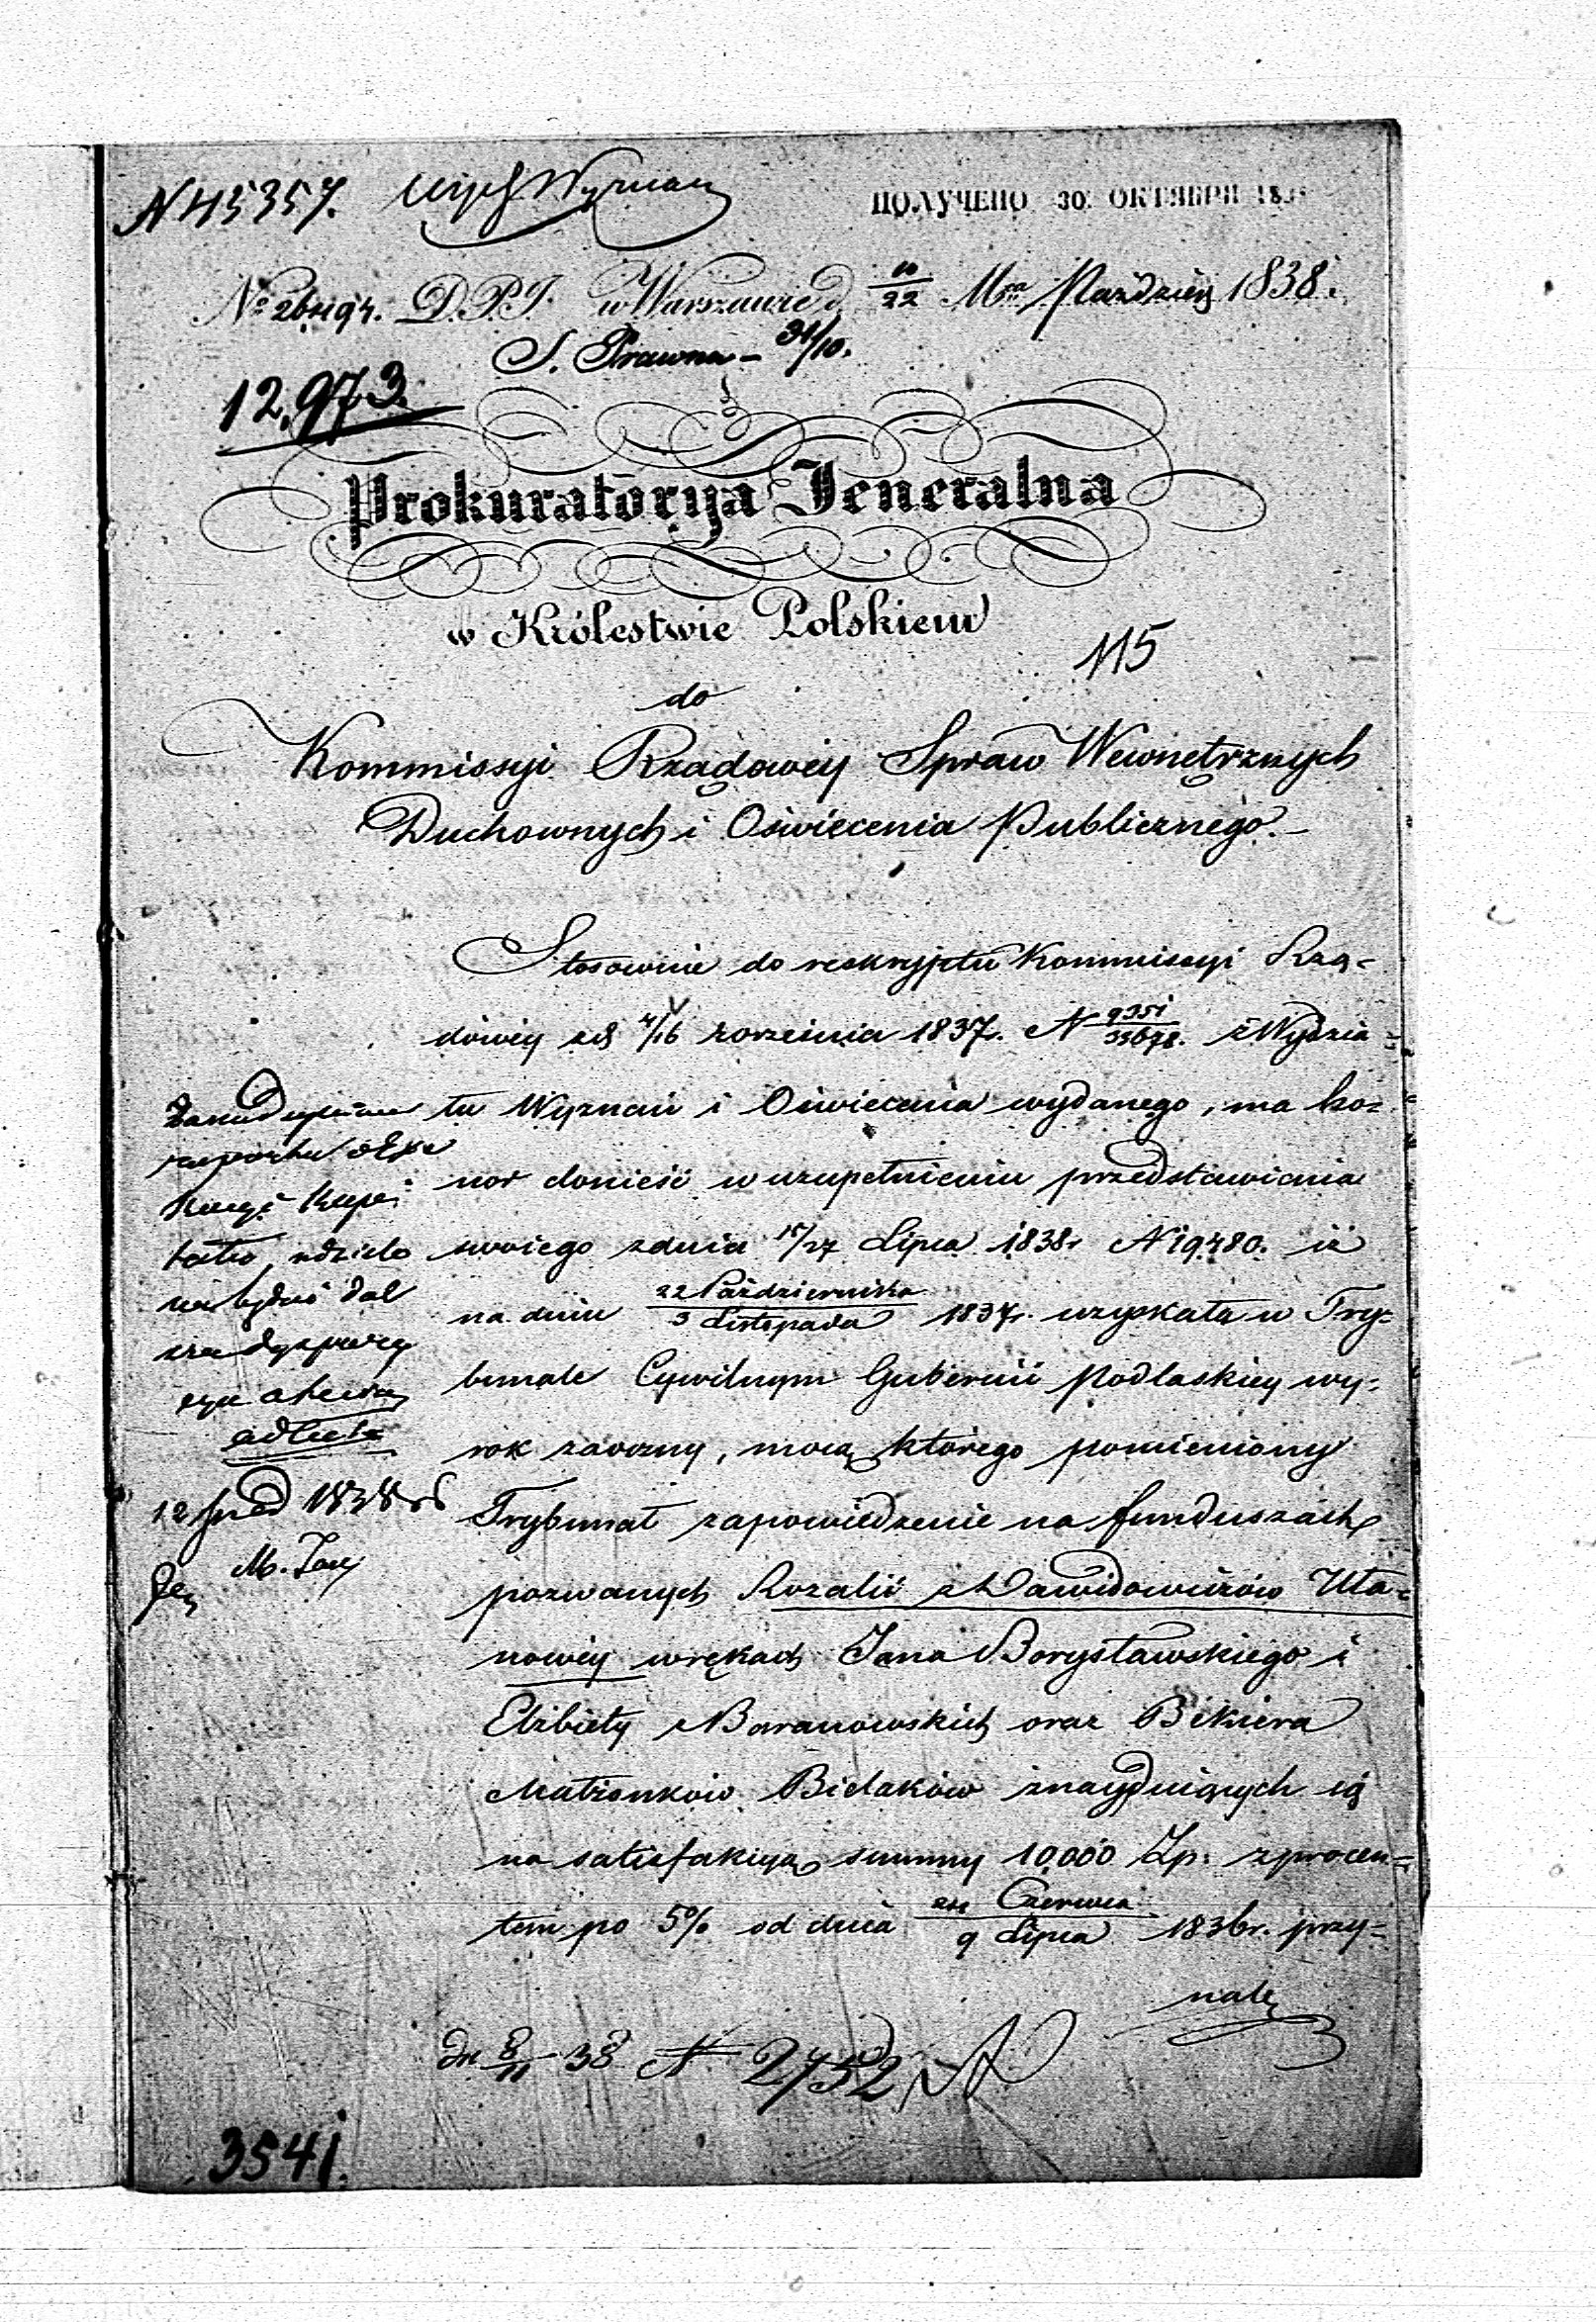 N 45357. Wyzn
ПОЛУЧЕНО 30. ОКТЯБРЯ 183
№ 26494. D.P.J. w Warszawie d. 10/22 Mca Paździer 1838.
S. Prawna - 31/10.
12,973.
Prokuratorya Jeneralna
w Królestwie Polskiem
115
do
Kommissyi Rządowéy Spraw Wewnętrznych
Duchownych i Oświecenia Publicznego.-
Stosownie do reskryptu Kommissyi Rzą-
dowéy z d. 4/16 Września 1837. N 9351/33678. z Wydzia-
łu Wyznań i Oświecenia wydanego, ma ho-
nor donieść w uzupełnieniu przedstawienia
swoiego z dnia 15/27 Lipca 1838r N 19480. iż
na dniu 22 Października/3 Listopada 1837r. uzyskała w Try-
bunale Cywilnym Gubernii Podlaskiey wy-
rok zaoczny, mocą którego pomieniony
Trybunał zapowiedzenie na funduszach
pozwanych Rozalii z Dawidowiczów Uła-
nowéy w rękach Jana Borysławskiego i
Elżbiety z Baranowskich oraz Bekiera
Małżonków Bielaków znayduiących się
na satisfakcyą summy 10,000 Zp. z procen-
tem po 5% od dnia 27 Czerwca/9 Lipca 1836r. przy-
nale
raportu
udziele
dal
ad acta
12 1838
dn 8/11 38 N 2752
3541.